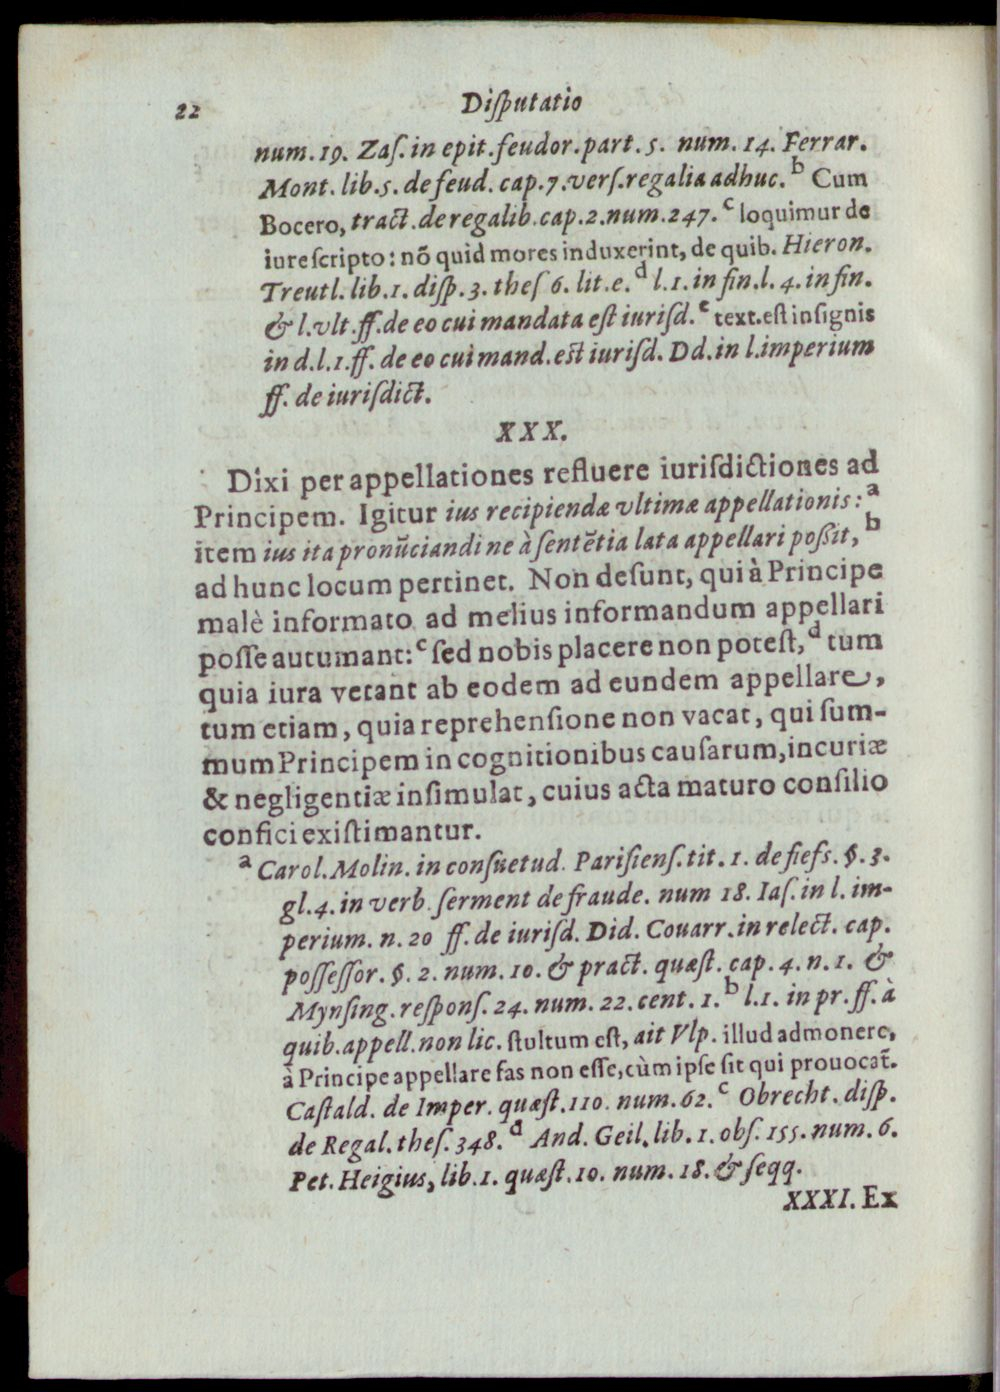 22 Diſputatio
num. 19. Zaſ. in epit. feudor. part. 5. num. 14. Ferrar.
Mont. lib. 5. de feud. cap. 7. verſ. regalia adhuc. b Cum
Bocero, tract. de regalib. cap. 2. num. 247. c loquimur de
iure ſcripto: nõ quid mores induxerint, de quib. Hieron.
Treutl. lib. 1. diſp. 3. theſ 6. lit. e. d l. 1. in fin. l. 4. in fin.
& l. vlt. ff. de eo cui mandata eſt iuriſd. e text. eſt inſignis
in d. l. 1. ff. de eo cui mand. eſt iuriſd. Dd. in l. imperium
ff. de iuriſdict.
XXX.
Dixi per appellationes refluere iuriſdictiones ad
Principem. Igitur ius recipiendæ vltimæ appellationis: a
item ius ita pronũciandi ne à ſentẽtia lata appellari poſſit, b
ad hunc locum pertinet. Non deſunt, qui à Principe
malè informato ad melius informandum appellari
poſſe autumant: c ſed nobis placere non poteſt, d tum
quia iura vetant ab eodem ad eundem appellare,
tum etiam, quia reprehenſione non vacat, qui ſum-
mum Principem in cognitionibus cauſarum, incuriæ
& negligentiæ inſimulat, cuius acta maturo conſilio
confici exiſtimantur.
a Carol. Molin. in conſuetud. Pariſienſ. tit. 1. de fiefs. §. 3.
gl. 4. in verb. ſerment de fraude. num 18. Iaſ. in l. im-
perium. n. 20 ff. de iuriſd. Did. Couarr. in relect. cap.
poſſeſſor. §. 2. num. 10. & pract. quæſt. cap. 4. n. 1. &
Mynſing. reſponſ. 24. num. 22. cent. 1. b l. 1. in pr. ff. à
quib. appell. non lic. ſtultum eſt, ait Vlp. illud admonere,
à Principe appellare fas non eſſe, cùm ipſe ſit qui prouocat̃.
Caſtald. de Imper. quæſt. 110. num. 62. c Obrecht. diſp.
de Regal. theſ. 348. d And. Geil. lib. 1. obſ. 155. num. 6.
Pet. Heigius, lib. 1. quæſt. 10. num. 18. & ſeqq.
XXXI. Ex